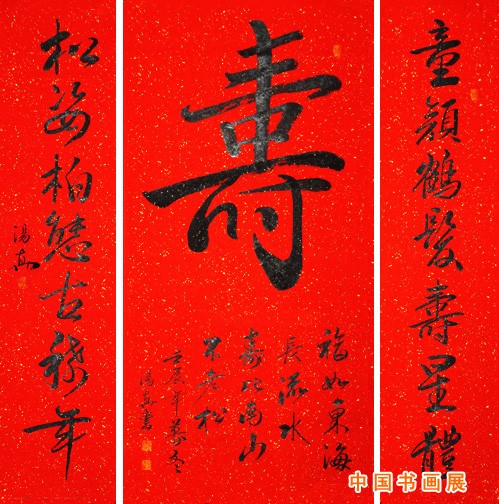 童顏鶴髮壽星體
壽
福如東海
長流水
壽比南山
不老松
壬辰年
湯 書
松姿柏態古稀年
湯
中国书画展